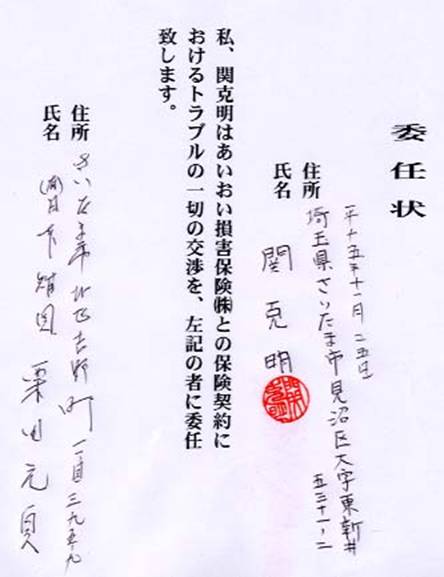 委任状
平十五年十一月二五日
埼玉県さいたま市見沼区大字東新井
五三十一、二
住所
氏名 関克明
私、関克明はあいおい損害保険㈱との保険契約に
おけるトラブルの一切の交渉を、左記の者に委任
致します。
住所 さいたま市北区吉野町 一丁目三九五九
氏名 栗田元貞